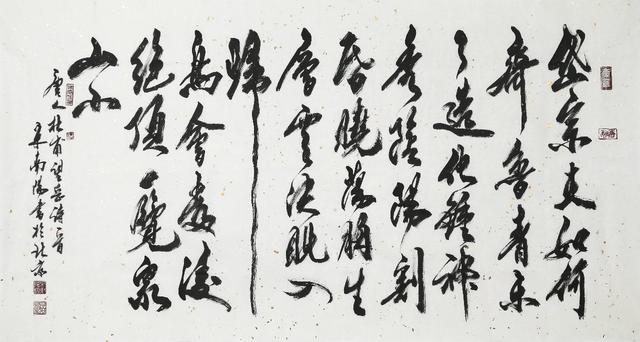 岱宗夫如何
齊魯青未
了造化鍾神
秀陰陽割
昏曉蕩胸生
層雲決眦入
歸
鳥會當凌
絶頂一覽衆
山小
唐人杜甫望岳詩一首
米南陽書於北京